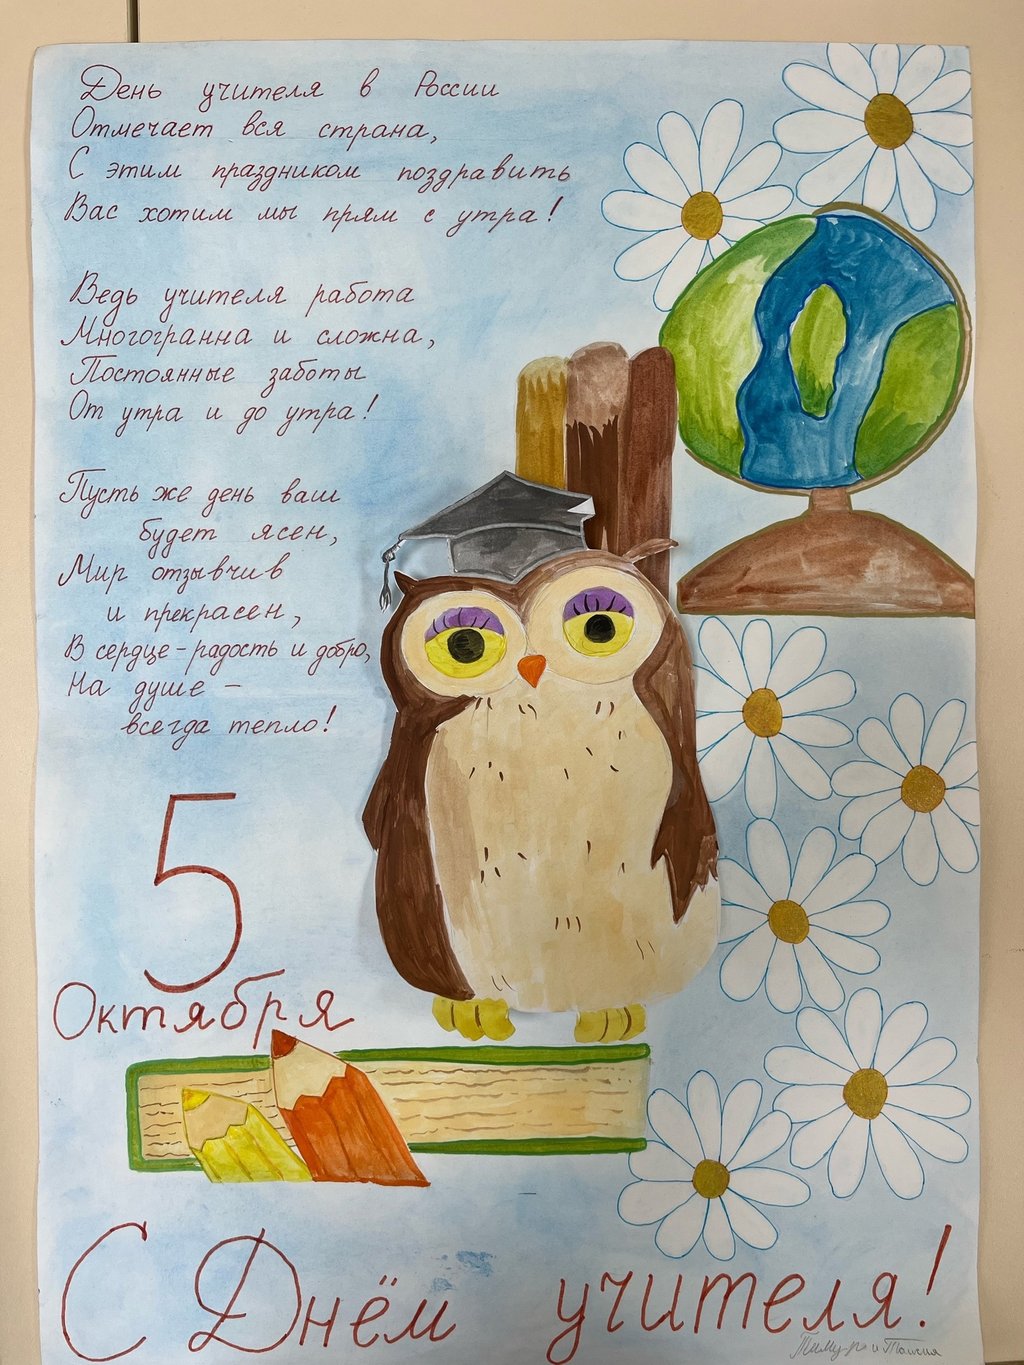 День учителя в России
Отмечает вся страна,
С этим праздником поздравить
Вас хотим мы прям с утра!
Ведь учителя работа
Многогранна и сложна,
Постоянные заботы
От утра и до утра!
Пусть же день ваш
будет ясен,
Мир отзывчив
и прекрасен,
В сердце - радость и добро,
На душе -
всегда тепло!
5
Октября
С Днём учителя!
Тимур и Таисия